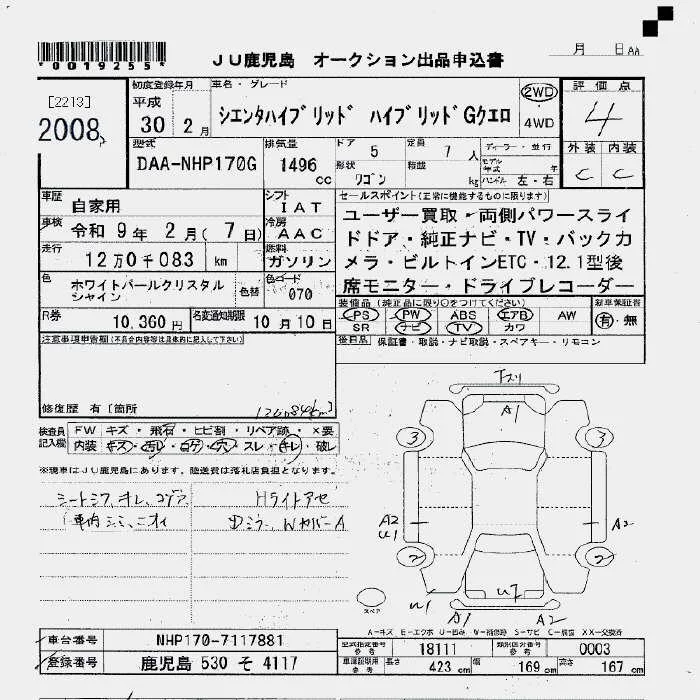 *0019255*
JU鹿児島 オークション出品申込書
月 日 AA
[2213]
2008
初度登録年月
平成
30 2月
車名・グレード
シエンタハイブリッド ハイブリッドGクエロ
2WD
4WD
評価点
4
型式
DAA-NHP170G
排気量
1496 cc
ドア 5
形状 ワゴン
定員 7 人
積載 kg
ディーラー・並行
モデル年式 年
ハンドル 左・右
外装 内装
C C
車歴
自家用
シフト
IAT
セールスポイント(正常に機能するものに限ります)
車検
令和 9年 2月( 7日)
冷房
AAC
ユーザー買取・両側パワースライ
ドドア・純正ナビ・TV・バックカ
メラ・ビルトインETC・12.1型後
席モニター・ドライブレコーダー
走行
12万0千083 km
燃料
ガソリン
色
ホワイトパールクリスタル
シャイン
色替
色コード
070
装備品(純正品に限り○をつけてください)
新車保証書
PS PW ABS エアB AW
SR ナビ TV カワ
有・無
R券
10,360円
名変通知期限
10月10日
注意事項申告欄(不具合内容等は具体的に記入して下さい)
後日品 保証書・取説・ナビ取説・スペアキー・リモコン
修復歴 有[箇所
120084km]
検査員記入欄
FW キズ・飛石・ヒビ割・リペア跡・×要
内装 キズ・汚レ・コゲ・穴・スレ・キレ・破レ
※現車はJU鹿児島にあります。陸送費は落札店負担となります。
シートシワ、キレ、コゲアナ
車内シミ、ニオイ
Hライトアセ
下スリ
A1
3 3
A2
U1
A2
2 2
U1
U7
A1 A2
スペア
A-キズ E-エクボ U-凹み W-補修跡 S-サビ C-腐蝕 XX-交換済
車台番号
NHP170-7117881
型式指定番号 参考
18111
類別区分番号 参考
0003
登録番号
鹿児島 530 そ 4117
車庫証明用 参考
長さ 423 cm
幅 169 cm
高さ 167 cm